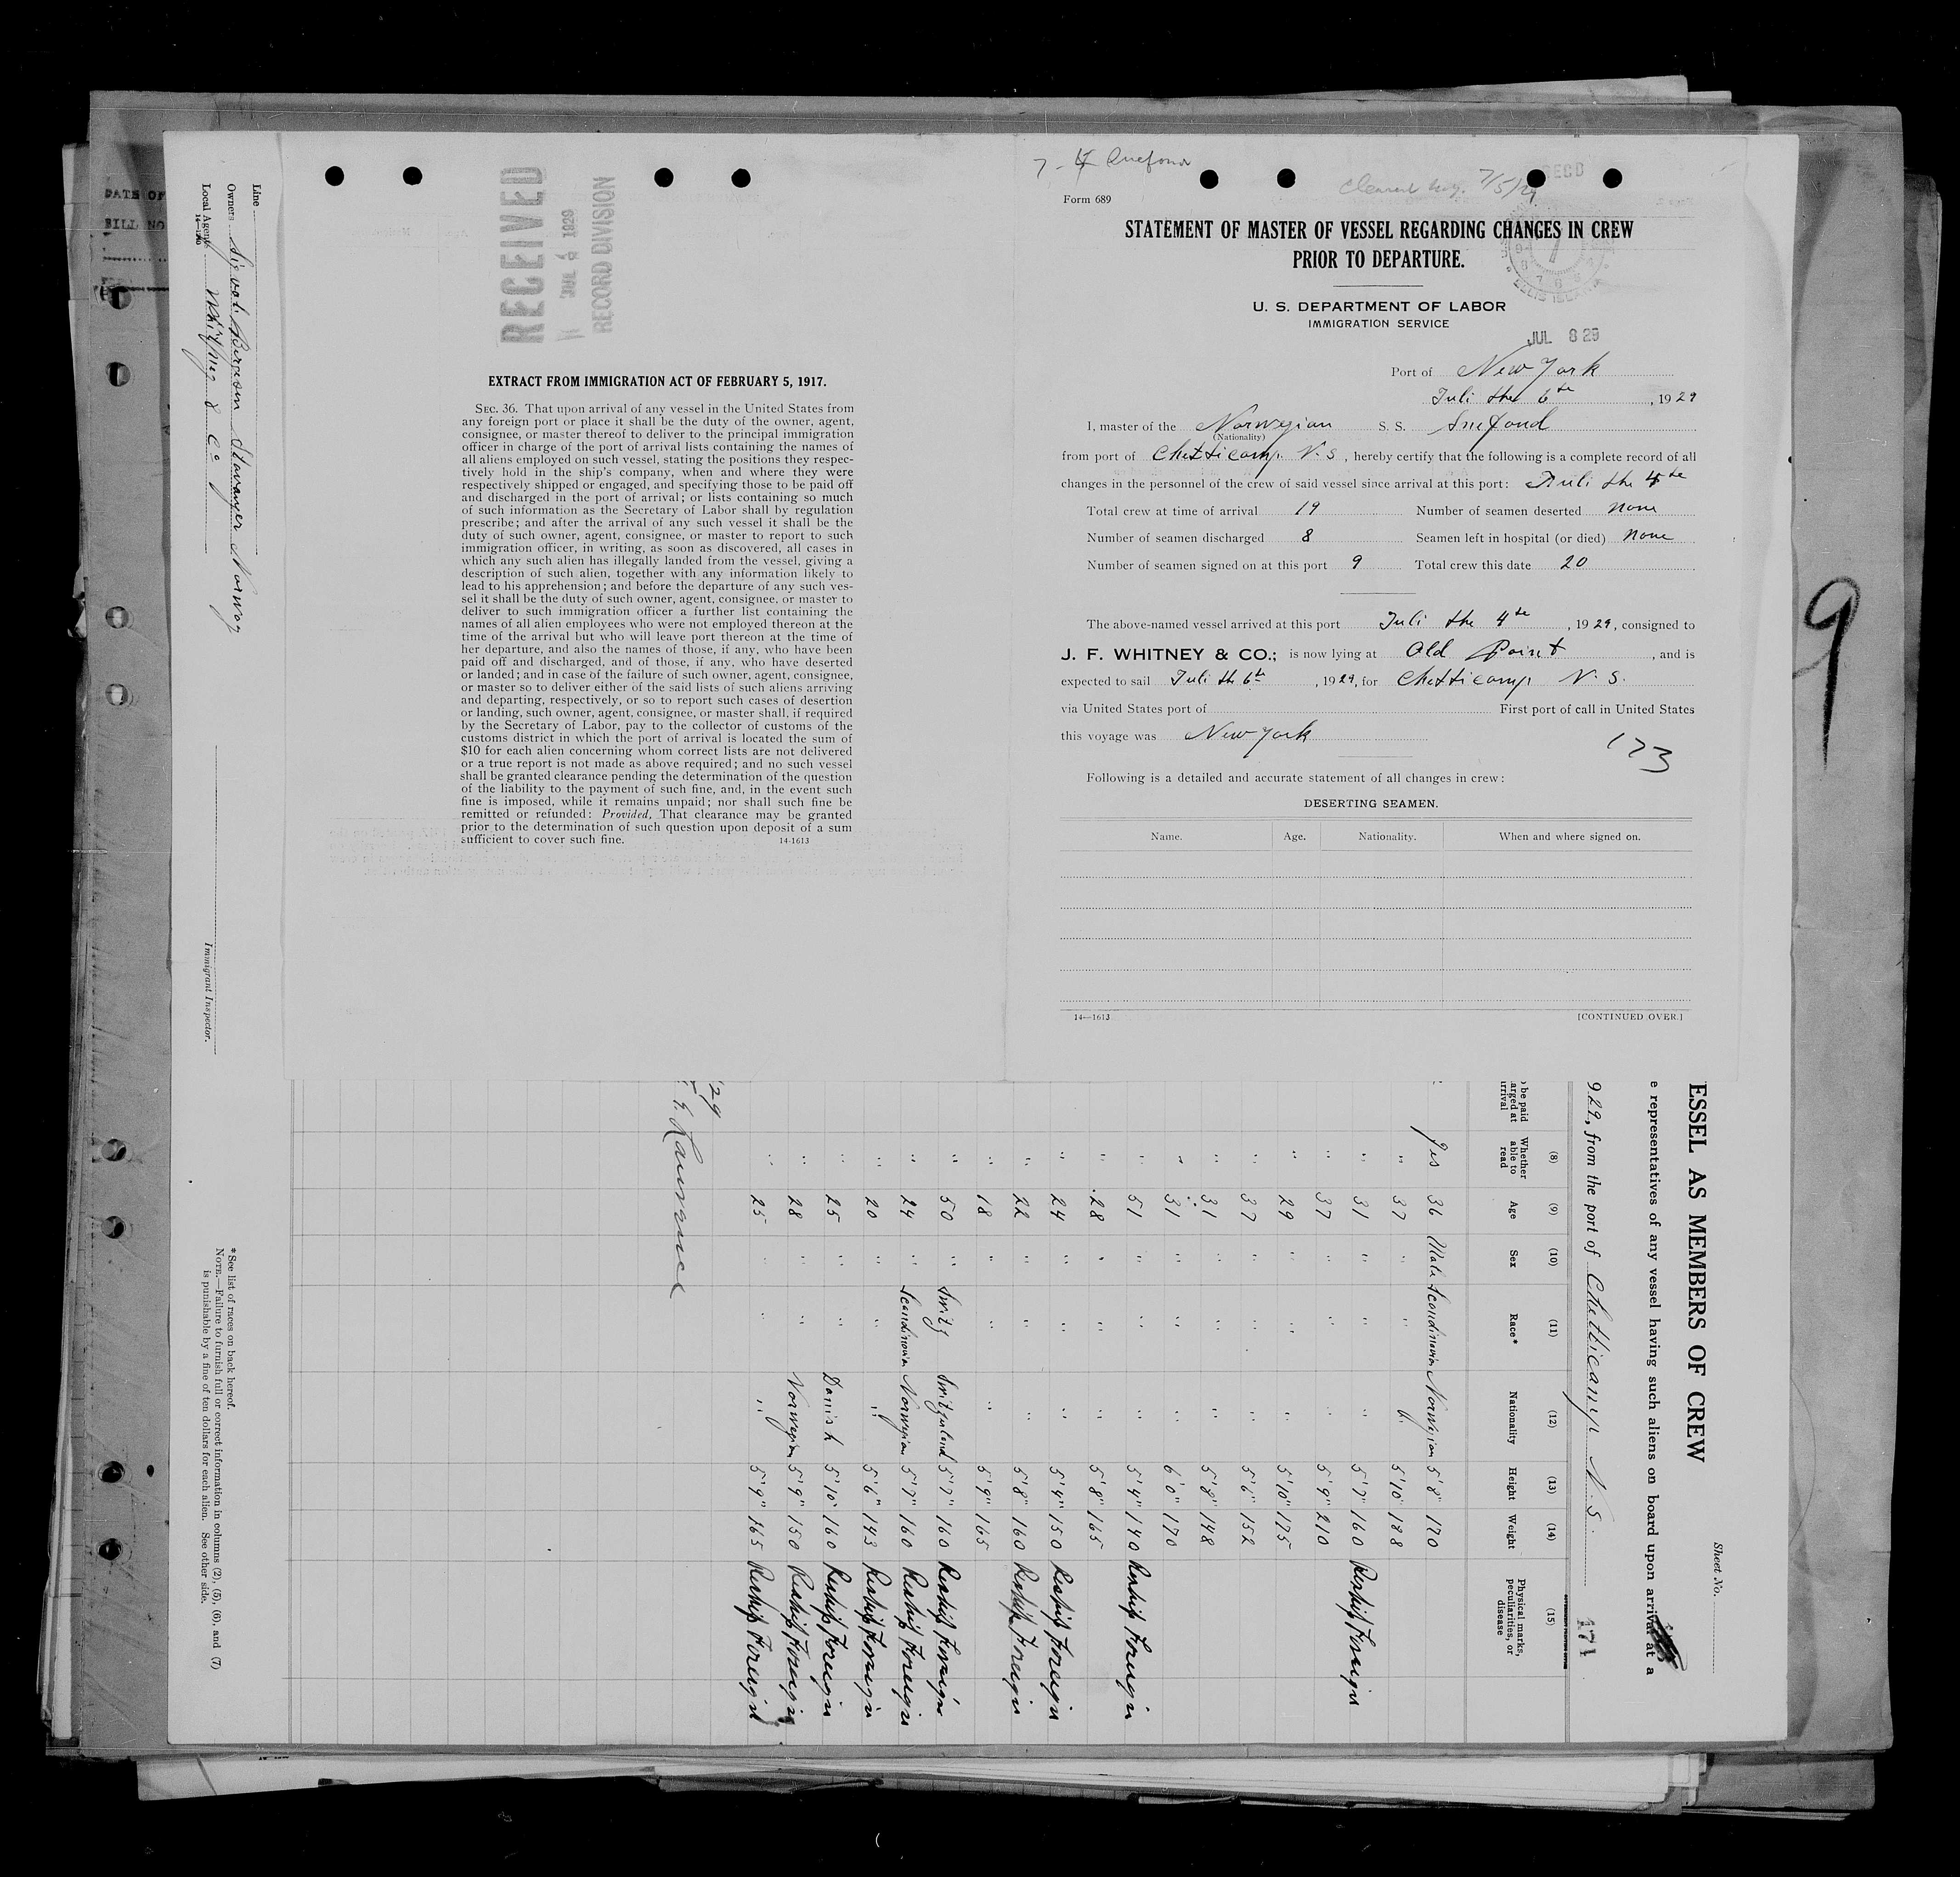 7-4 Snefond
Cleared Ny. 7/5/29
Form 689
STATEMENT OF MASTER OF VESSEL REGARDING CHANGES IN CREW
PRIOR TO DEPARTURE.
U. S. DEPARTMENT OF LABOR
IMMIGRATION SERVICE
JUL 8 29
Port of New York
Juli the 6te, 1929
I, master of the Norwegian S. S. Snefond
(Nationality)
from port of Chetticamp N. S., hereby certify that the following is a complete record of all
changes in the personnel of the crew of said vessel since arrival at this port: Juli the 4te
Total crew at time of arrival 19 Number of seamen deserted none
Number of seamen discharged 8 Seamen left in hospital (or died) none
Number of seamen signed on at this port 9 Total crew this date 20
The above-named vessel arrived at this port Juli the 4te, 1929, consigned to
J. F. WHITNEY & CO.; is now lying at Old Point, and is
expected to sail Juli the 6te, 1929, for Chetticamp N. S.
via United States port of First port of call in United States
this voyage was New York
173
Following is a detailed and accurate statement of all changes in crew:
DESERTING SEAMEN.
Name. Age. Nationality. When and where signed on.
14—1613 [CONTINUED OVER.]
RECEIVED
JUL 9 1929
RECORD DIVISION
EXTRACT FROM IMMIGRATION ACT OF FEBRUARY 5, 1917.
SEC. 36. That upon arrival of any vessel in the United States from
any foreign port or place it shall be the duty of the owner, agent,
consignee, or master thereof to deliver to the principal immigration
officer in charge of the port of arrival lists containing the names of
all aliens employed on such vessel, stating the positions they respec-
tively hold in the ship's company, when and where they were
respectively shipped or engaged, and specifying those to be paid off
and discharged in the port of arrival; or lists containing so much
of such information as the Secretary of Labor shall by regulation
prescribe; and after the arrival of any such vessel it shall be the
duty of such owner, agent, consignee, or master to report to such
immigration officer, in writing, as soon as discovered, all cases in
which any such alien has illegally landed from the vessel, giving a
description of such alien, together with any information likely to
lead to his apprehension; and before the departure of any such ves-
sel it shall be the duty of such owner, agent, consignee, or master to
deliver to such immigration officer a further list containing the
names of all alien employees who were not employed thereon at the
time of the arrival but who will leave port thereon at the time of
her departure, and also the names of those, if any, who have been
paid off and discharged, and of those, if any, who have deserted
or landed; and in case of the failure of such owner, agent, consignee,
or master so to deliver either of the said lists of such aliens arriving
and departing, respectively, or so to report such cases of desertion
or landing, such owner, agent, consignee, or master shall, if required
by the Secretary of Labor, pay to the collector of customs of the
customs district in which the port of arrival is located the sum of
$10 for each alien concerning whom correct lists are not delivered
or a true report is not made as above required; and no such vessel
shall be granted clearance pending the determination of the question
of the liability to the payment of such fine, and, in the event such
fine is imposed, while it remains unpaid; nor shall such fine be
remitted or refunded: Provided, That clearance may be granted
prior to the determination of such question upon deposit of a sum
sufficient to cover such fine.
14-1613
9
DATE OF
BILL NO
Sheet No.
ESSEL AS MEMBERS OF CREW
e representatives of any vessel having such aliens on board upon arrival at a
929, from the port of Chetticamp N. S.
171
(8) (9) (10) (11) (12) (13) (14) (15)
be paid
arged at
rrival
Whether
able to
read
Age Sex Race* Nationality Height Weight
Physical marks,
peculiarities, or
disease
Yes 36 Male Scandinavian Norwegian 5'8" 170
" 37 " " " 5'10" 188
" 31 " " " 5'7" 160 Reship Foreign
" 37 " " " 5'9" 210
" 29 " " " 5'10" 175
" 37 " " " 5'6" 152
" 31 " " " 5'8" 148
" 31 " " " 6'0" 170
" 51 " " " 5'4" 140 Reship Foreign
" 28 " " " 5'8" 165
" 24 " " " 5'4" 150 Reship Foreign
" 22 " " " 5'8" 160 Reship Foreign
" 18 " " " 5'9" 165
" 50 " Switz Switzerland 5'7" 160 Reship Foreign
" 24 " Scandinavian Norwegian 5'7" 160 Reship Foreign
" 20 " " " 5'6" 143 Reship Foreign
" 25 " " Danish 5'10" 160 Reship Foreign
" 28 " " Norwegian 5'9" 150 Reship Foreign
" 25 " " " 5'9" 165 Reship Foreign
'29
Line
Owners Stavanger Norway
Local Agents Whitney & Co
14—1240
Immigrant Inspector.
*See list of races on back hereof.
NOTE.—Failure to furnish full or correct information in columns (2), (5), (6), and (7)
is punishable by a fine of ten dollars for each alien. See other side.